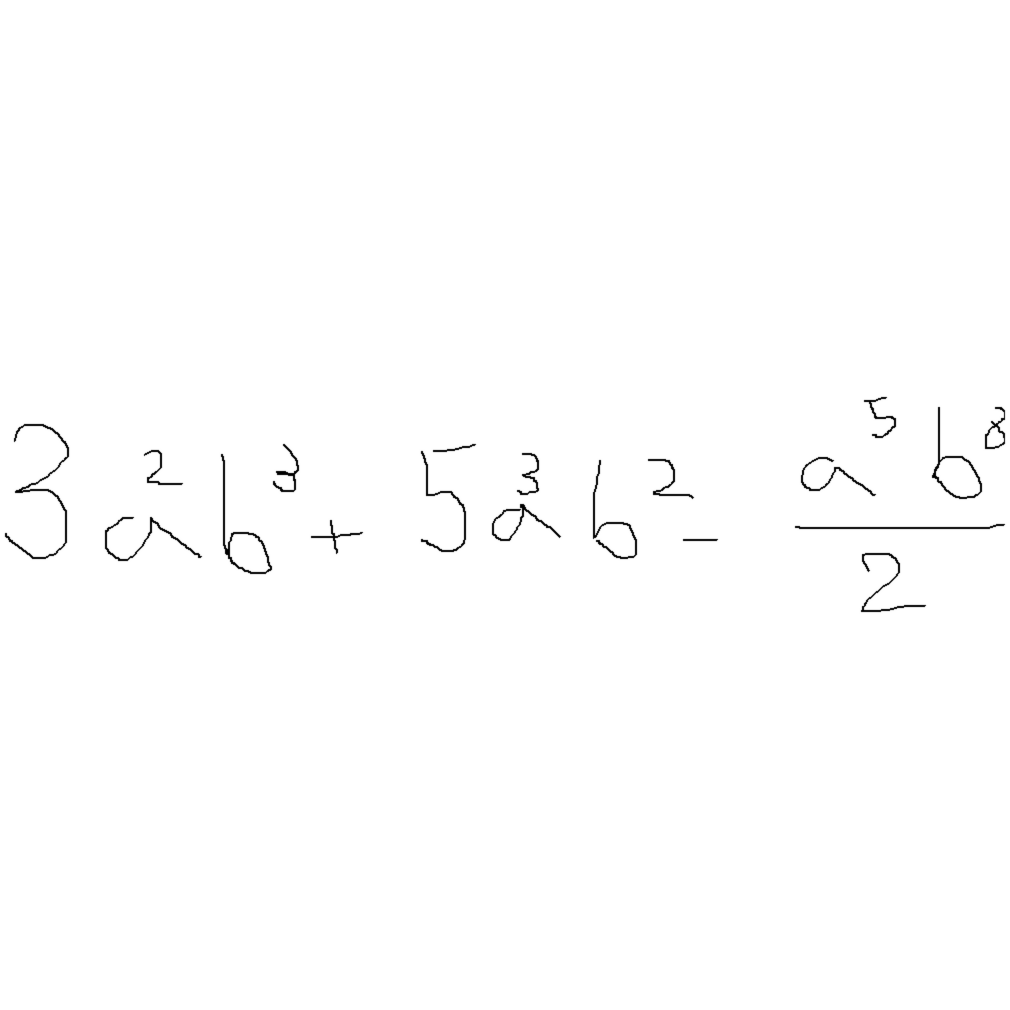 3a²b³ + 5a³b² - a⁵b⁸/2